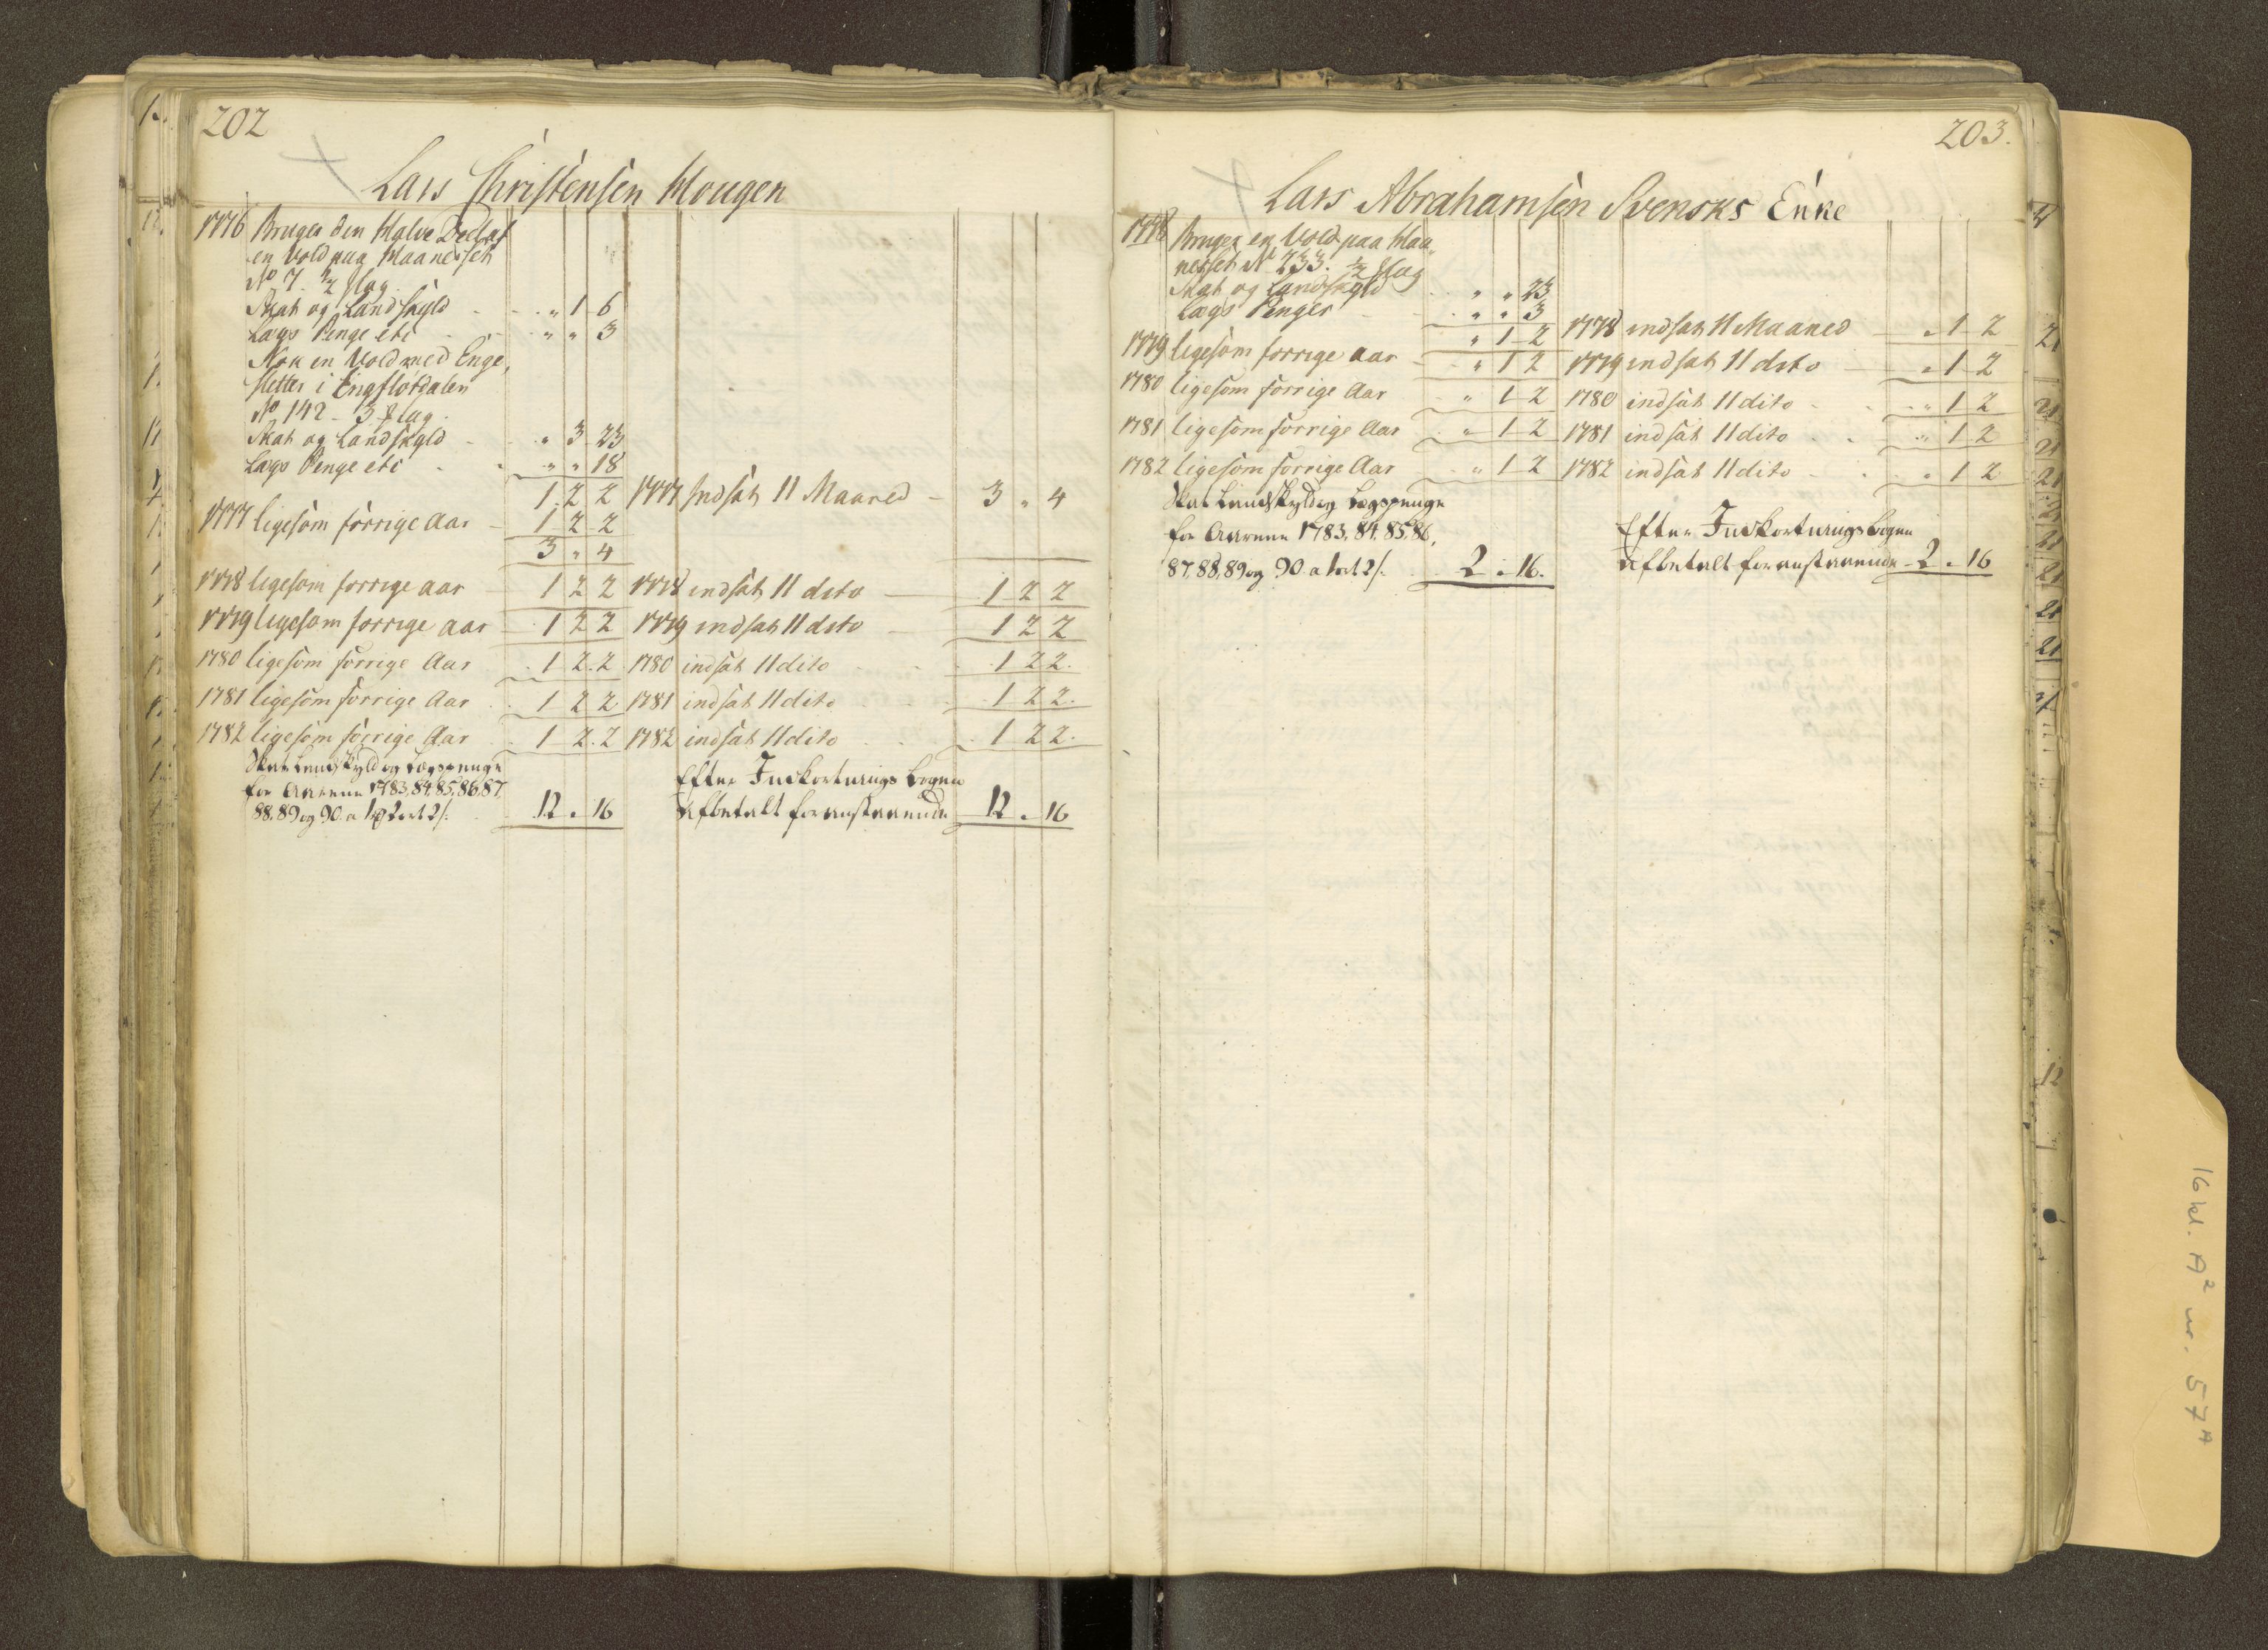 202
Lars Christensen Hougen
1776 Bruger den Halve Deel af
en Vold paa Haanesset
No 7. ½ Flag
Skat og Landskyld - " 1 6
Lægs Penge etc - " " 3
Nok en Vold med Enge,
sletter i Engfløtdalen
No 142 - 3 Flag.
Skat og Landskyld - " 3 23
Lægs Penge etc - " " 18
1 2 2
1777 ligesom forrige Aar - 1 2 2
3 " 4
1778 ligesom forrige aar - 1 2 2
1779 ligesom forrige aar - 1 2 2
1780 ligesom forrige Aar . 1 2 . 2
1781 ligesom forrige Aar . 1 2 2
1782 ligesom forrige Aar . 1 2 . 2
Skat Landskyld og Lægspenge
for Aarene 1783, 84, 85, 86, 87,
88, 89 og 90. a 1 2 ort 2 /. 12 " 16
1777 Indsat 11 Maaned - 3 " 4
1778 indsat 11 dito - 1 2 2
1779 indsat 11 dito - 1 2 2
1780 indsat 11 dito . 1 2 2.
1781 indsat 11 dito . 1 2 2.
1782 indsat 11 dito . 1 2 2.
Efter Indkortnings bogen
afbetalt foranstaaende 12 " 16
203.
Lars Abrahamsen Svensks Enke
1778 Bruger en Vold paa Haa
nesset No 233. ½ Flag
Skat og Landskyld " " 23
Lægs Penger " " 3
" 1 2
1779 ligesom forrige aar - " 1 2
1780 ligesom forrige Aar " 1 2
1781 ligesom forrige Aar " 1 2
1782 ligesom forrige Aar " 1 2
Skat Landskyld og Lægspenge
for Aarene 1783, 84, 85, 86,
87, 88, 89 og 90. a 1 ort 2 /. 2 " 16.
1778 indsat 11 Maaned - " 1 2
1779 indsat 11 dito - " 1 2
1780 indsat 11 dito - " 1 2
1781 indsat 11 dito . " 1 2
1782 indsat 11 dito - " 1 2
Efter Indkortnings bogen
afbetalt foranstaaende - 2 " 16
16 kl. A² nr. 57 A